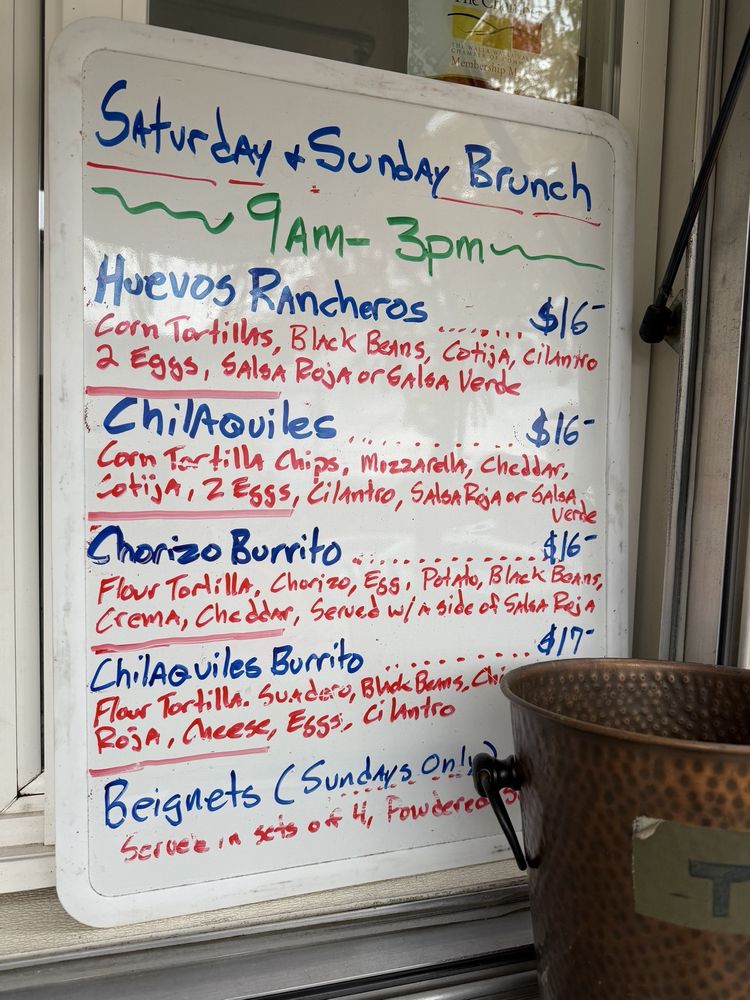 The Chamber
THE WALLA WALLA VALLEY
CHAMBER OF COMMERCE
Membership
Saturday + Sunday Brunch
9AM- 3pm
Huevos Rancheros ........ $16-
Corn Tortillas, Black Beans, Cotija, Cilantro
2 Eggs, Salsa Roja or Salsa Verde
ChilAquiles ............. $16-
Corn Tortilla Chips, Mozzarella, Cheddar,
Cotija, 2 Eggs, Cilantro, Salsa Roja or Salsa
Verde
Chorizo Burrito ............... $16-
Flour Tortilla, Chorizo, Egg, Potato, Black Beans,
Crema, Cheddar, Served w/ a side of Salsa Roja
ChilAquiles Burrito ............ $17-
Flour Tortilla. Suadero, Black Beans,
Roja, Cheese, Eggs, Cilantro
Beignets (Sundays Only)
Serve in sets of 4, Powdered
T